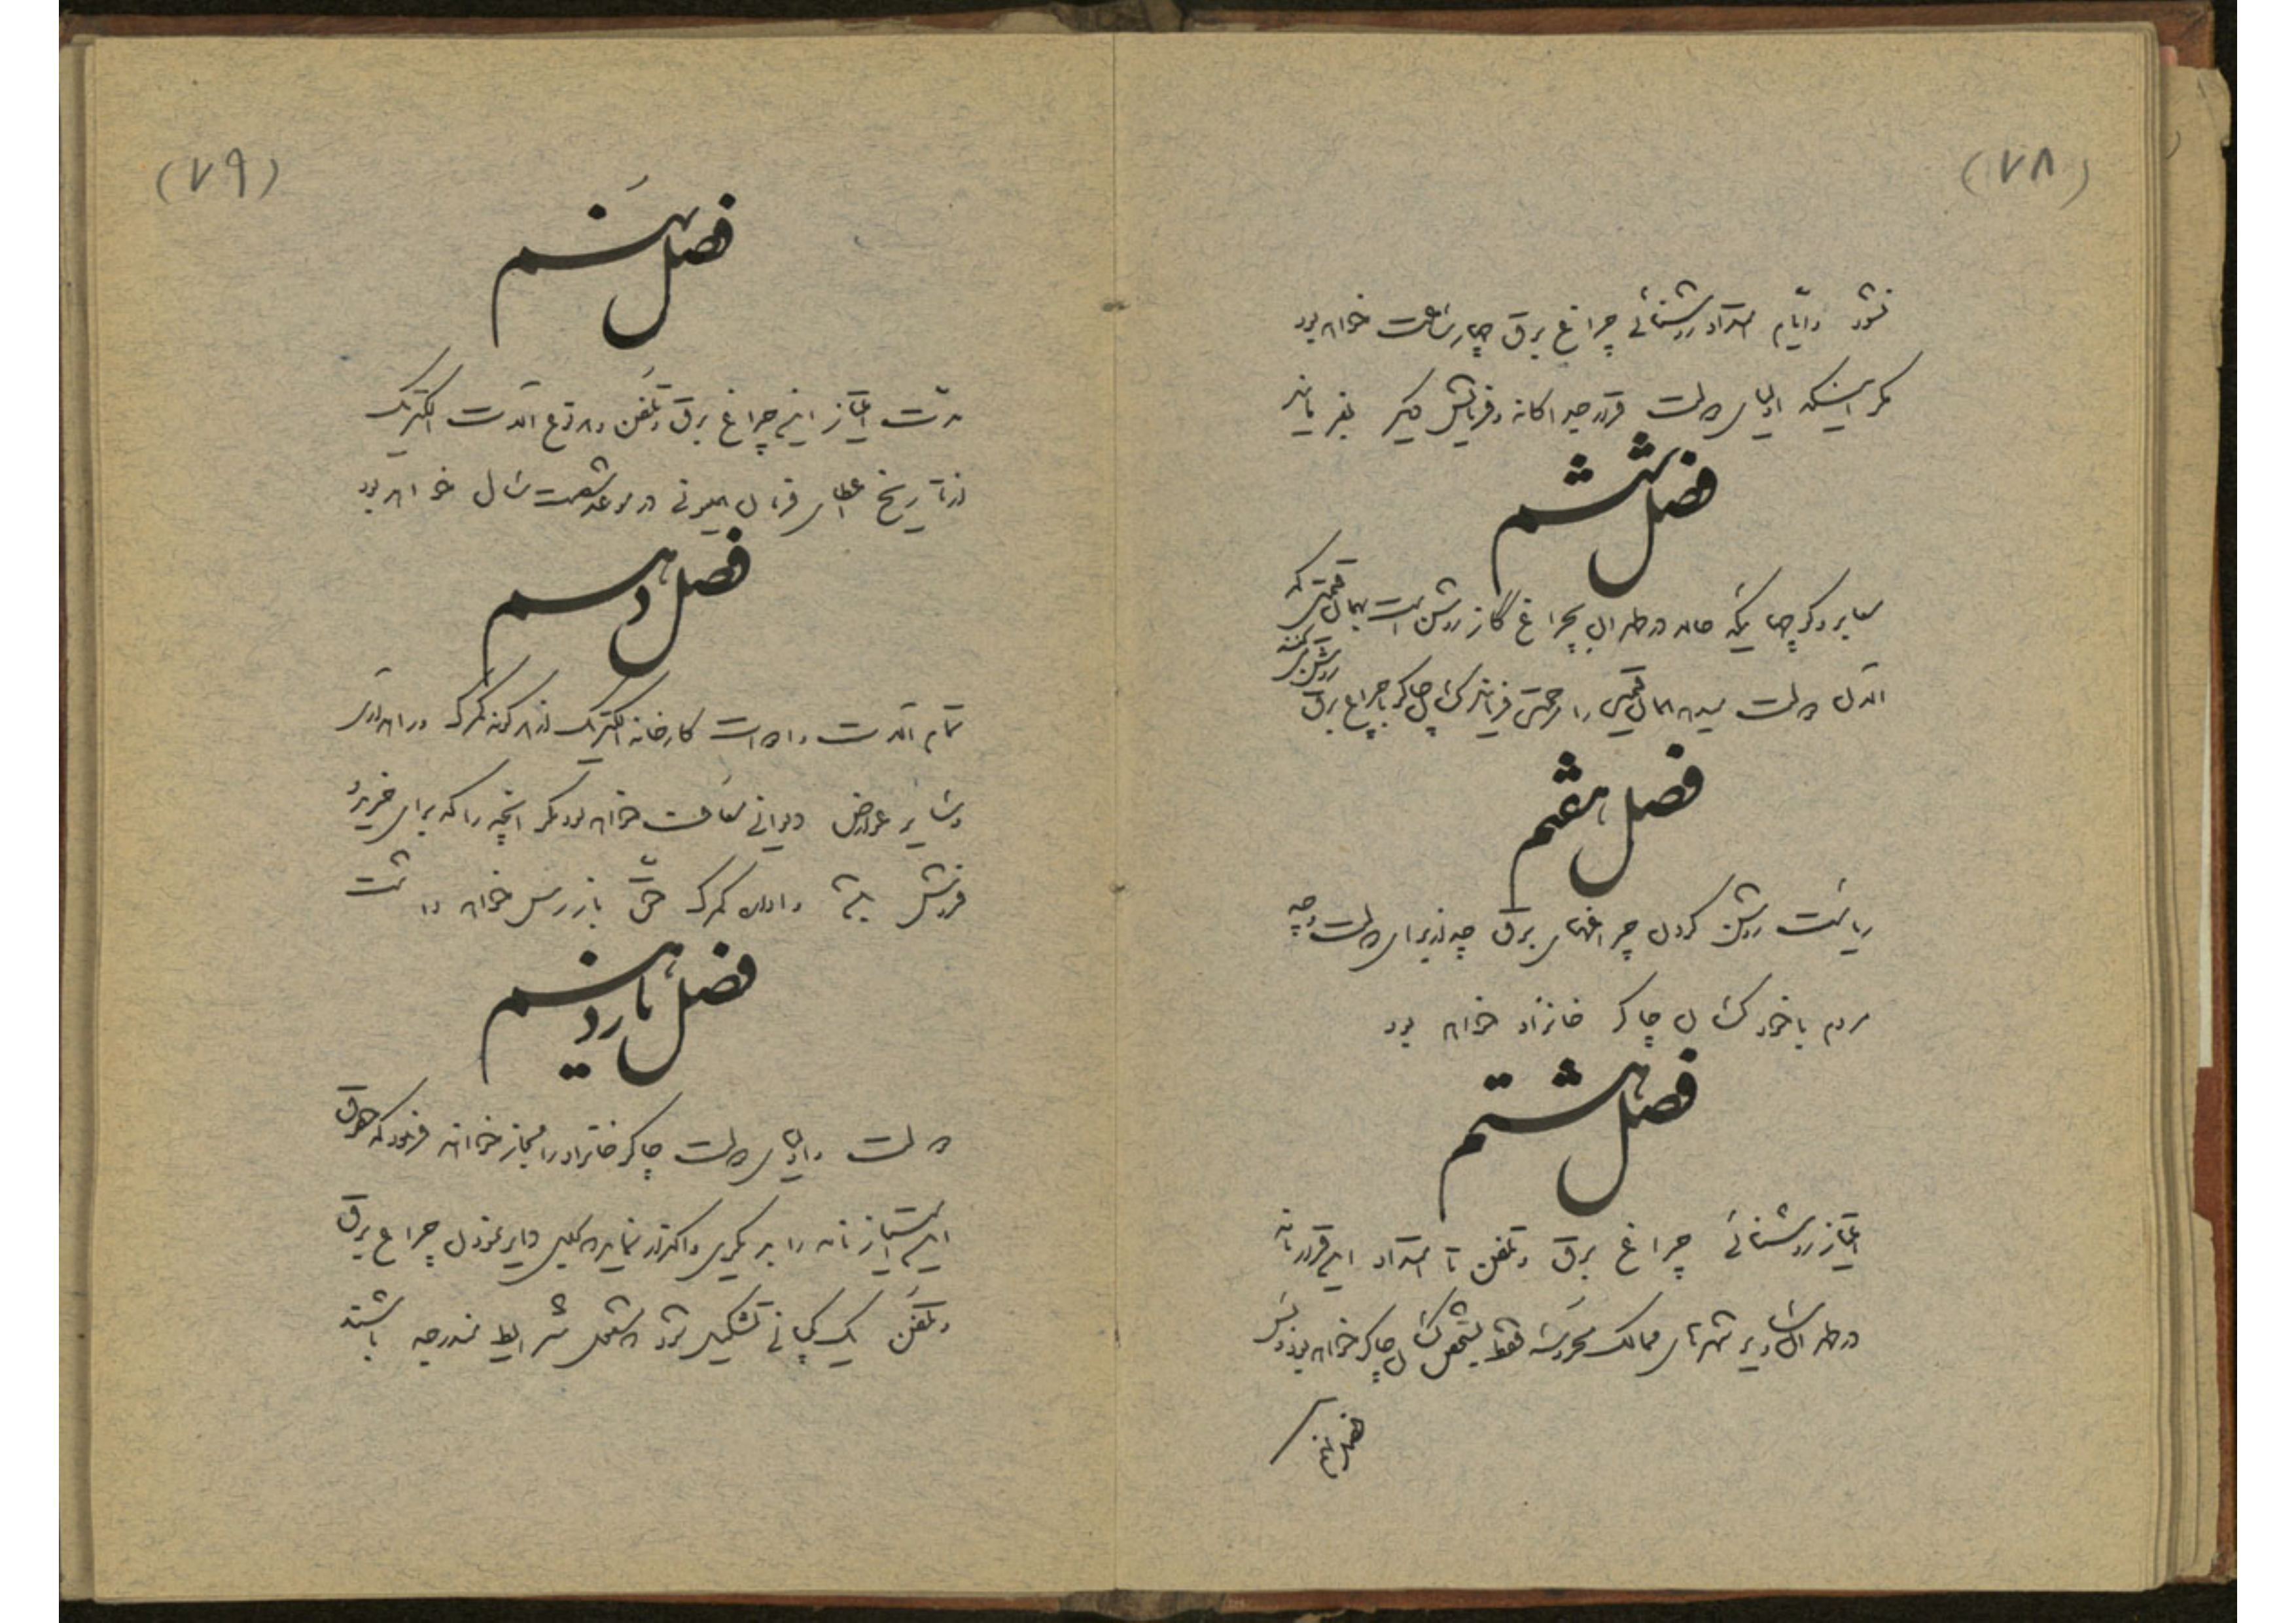 (۷۸)
نشود و ایام امتداد روشنائی چراغ برق چهار ساعت خواهد بود
مگر اینکه اولیای دولت قرار جداگانه و فرمایش دیگر بفرمایند
فصل ششم
سایر دکر چهائیکه حال در طهران بچراغ گاز روشن است بهمان قیمتی که
الان دولت میدهد همان قیمت را مرحمت فرمایند کسان چاکر با چراغ برق
روشن می کنند
فصل هفتم
ریاست روشن کردن چراغهای برق چه از برای دولت و چه
مردم با خود کسان چاکر خانزاد خواهد بود
فصل هشتم
امتیاز روشنائی چراغ برق و تلفن تا امتداد این قرارنامه
در طهران و سایر شهرهای ممالک محروسه فقط بشخص کسان چاکر خواهد بود و بس
فصل نهم
(۷۹)
فصل نهم
مدت امتیاز این چراغ برق و تلفن و هر نوع آلات الکتریک
از تاریخ اعطای فرمان همیونی در موعد شصت سال خواهد بود
فصل دهم
تمام آلات و ادوات کارخانه الکتریک از هر گونه گمرک و راهداری
و سایر عوارض دیوانی معاف خواهد بود مگر آنچه را که برای خرید و
فروش باشد و اداره گمرک حق بازرسی خواهد داشت
فصل یازدهم
دولت و اولیای دولت چاکر خانزاد را مجاز خواهند فرمود که حقوق
این امتیازنامه را بدیگری واگذار نماید و برای دایر نمودن چراغ برق
و تلفن یک کمپانی تشکیل شود و مشمول شرایط مندرجه باشند